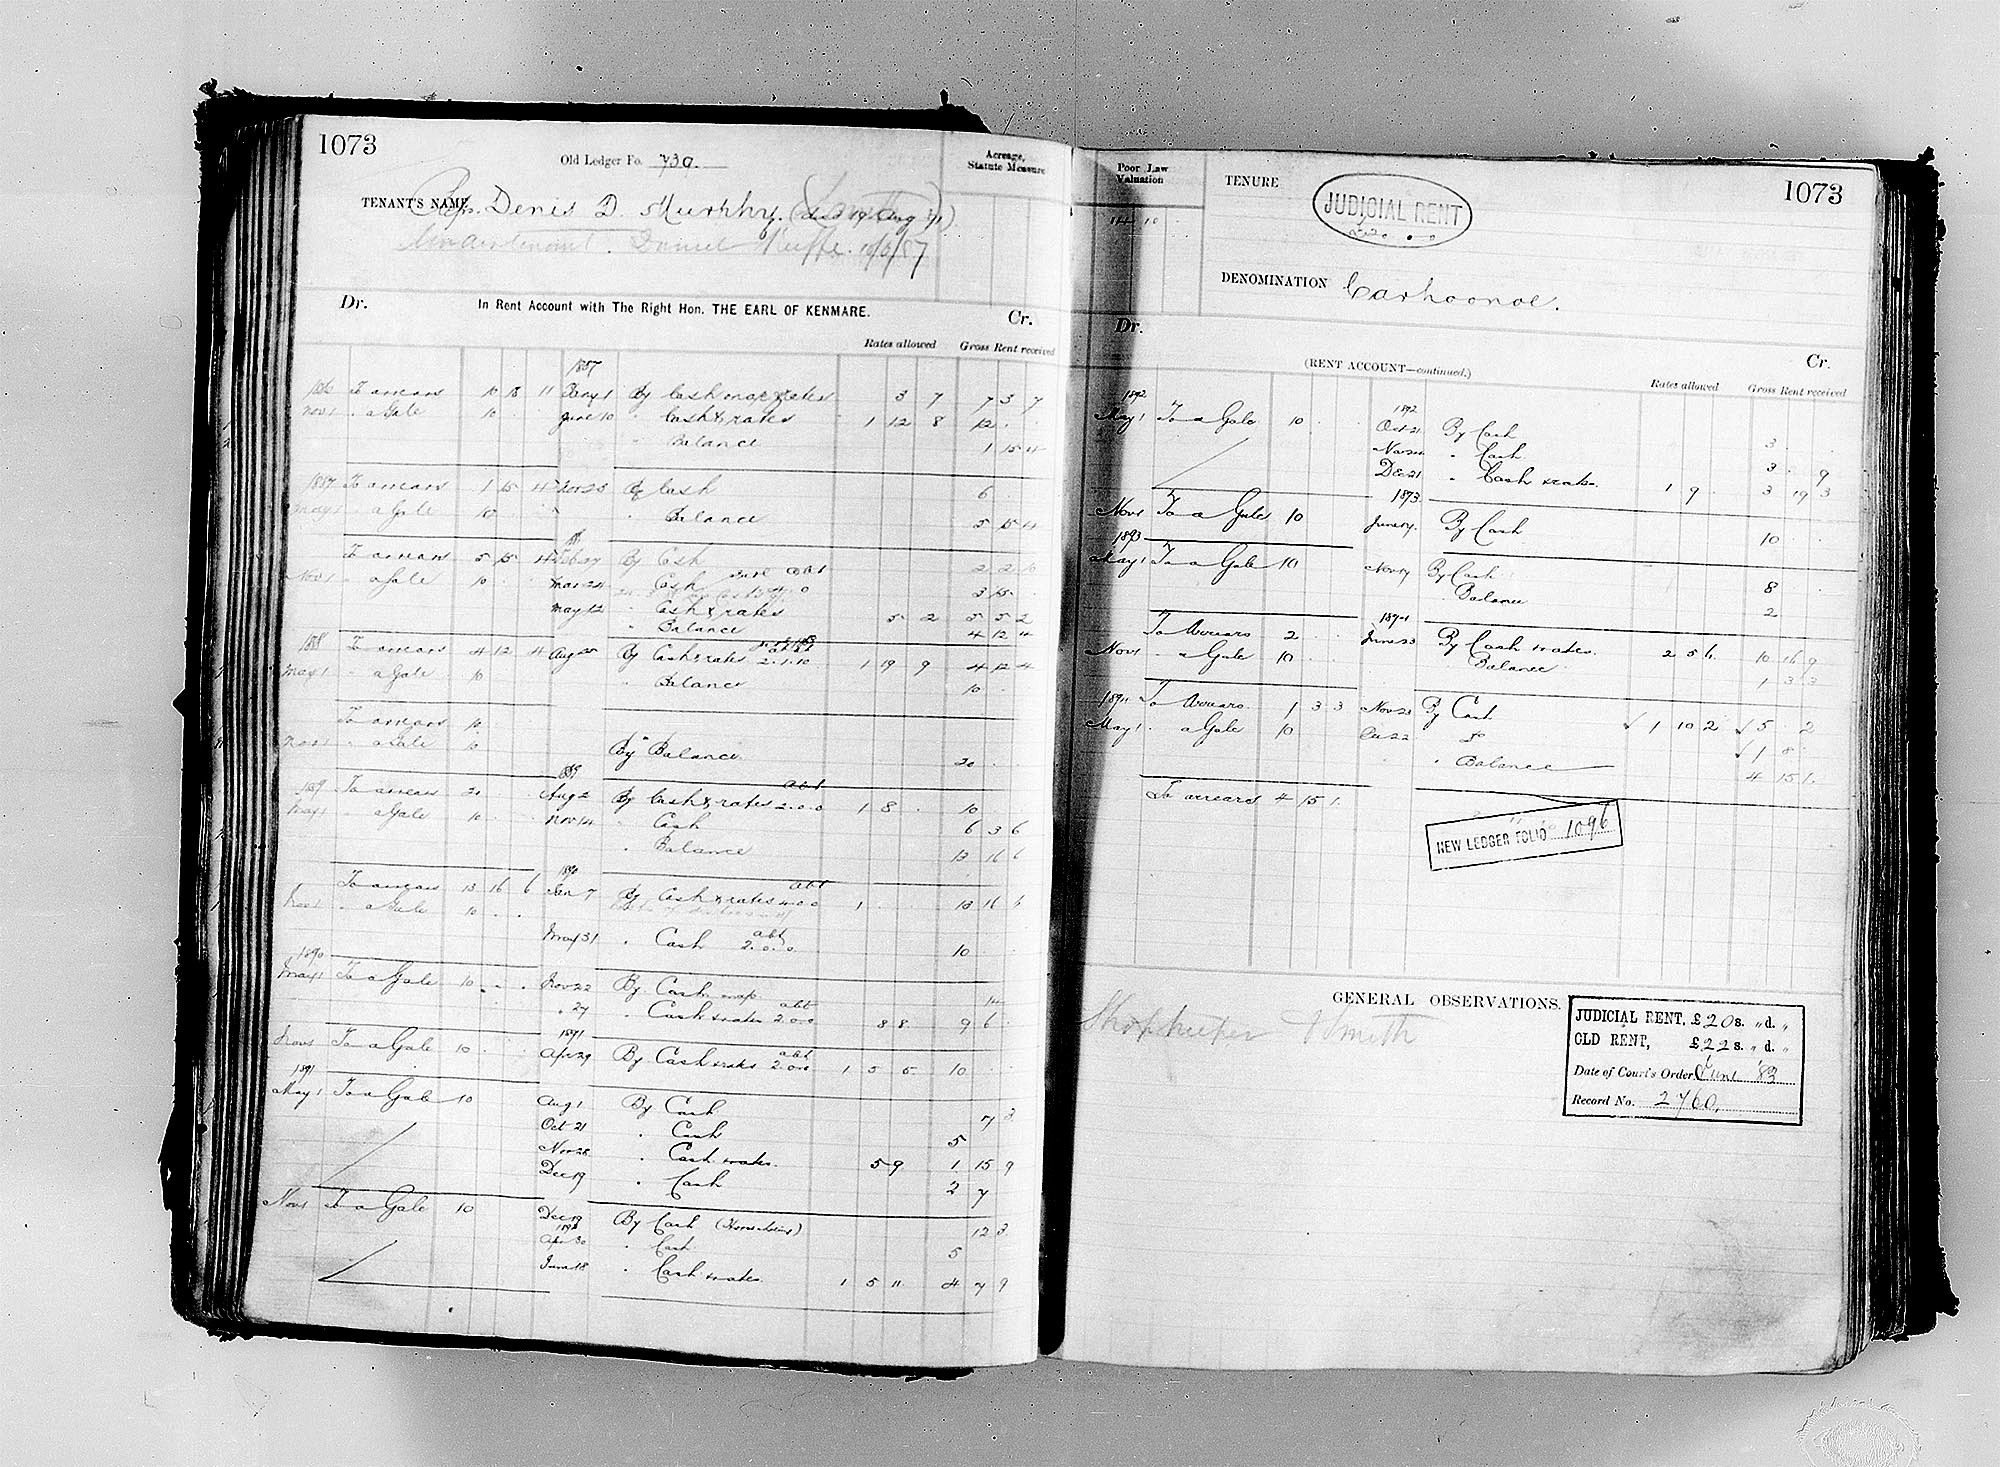 1073
Old Ledger Fo. 730.
Acreage,
Statute Measure
TENANT'S NAME Reps. Denis D. Murphy. (died 19 Aug 91)
Undertenant. Daniel Keeffe. 10/6/87
Dr. In Rent Account with The Right Hon. THE EARL OF KENMARE. Cr.
Rates allowed Gross Rent received
1887
1886 To arrears 10 18 11 By Cash & rates 3 7 7 3 7
Nov 1 " a Gale 10 June 10 " Cash & rates 1 12 8 12
" Balance 1 15 4
1887 To arrears 1 15 4 Nov 23 By Cash 6
May 1 " a Gale 10 " Balance 5 15 4
88
To arrears 5 15 4 Feb 27 By Cash 2 2
Nov 1 " a Gale 10 Mar 24 " Cash 3 15
May 12 " Cash & rates 5 2 5 5 2
" Balance 4 12 4
1888 To arrears 4 12 4 Aug 25 By Cash & rates 2.1.10 1 19 9 4 12 4
May 1 " a Gale 10 " Balance 10
To arrears 10
Nov 1 " a Gale 10 By Balance 20
89
1889 To arrears 20 Aug 2 By Cash & rates abt 2.0.0 1 8 10
May 1 " a Gale 10 Nov 14 " Cash 6 3 6
" Balance 13 16 6
1890
To arrears 13 16 6 Jan 7 By Cash & rates abt 4.0.0 1 13 16 6
Nov 1 " a Gale 10
May 31 " Cash abt 2.0.0 10
1890
May 1 To a Gale 10 Nov 22 By Cash 14
" 27 " Cash & rates abt 2.0.0 8 8 9 6
1891
Nov 1 To a Gale 10 Apr 29 By Cash & rates abt 2.0.0 1 5 5 10
1891
May 1 To a Gale 10 Aug 1 By Cash 7 3
Oct 21 " Cash 5
Nov 28 " Cash & rates 5 9 1 15 9
Dec 19 " Cash 2 7
Nov 1 To a Gale 10 Dec 19 By Cash 12 3
1892
Apr 30 " Cash 5
June 18 " Cash & rates 1 5 11 4 7 9
Poor Law
Valuation
14 10
TENURE
JUDICIAL RENT
£20 . 0 . 0
1073
DENOMINATION Carhoonoe.
Dr. (RENT ACCOUNT—continued.) Cr.
Rates allowed Gross Rent received
1892 1892
May 1 To a Gale 10 Oct 21 By Cash 3
Nov " Cash 3 . 9
Dec 21 " Cash & rates 1 9 3 19 3
1893
Nov 1 To a Gale 10 June 14 By Cash 10
1893
May 1 To a Gale 10 Nov 17 By Cash 8
Balance 2
1894
To Arrears 2 June 23 By Cash & rates 2 5 6 10 16 9
Nov 1 " a Gale 10 Balance 1 3 3
1894 To Arrears 1 3 3 Nov 23 By Cash 1 10 2 5 . 2
May 1 " a Gale 10 Dec 22 Do 1 8
" Balance 4 15 1
To arrears 4 15 1
NEW LEDGER FOLIO 1096
GENERAL OBSERVATIONS.
Shopkeeper & Smith
JUDICIAL RENT, £20 s. " d. "
OLD RENT, £22 s. " d. "
Date of Court's Order June '83
Record No. 2760.